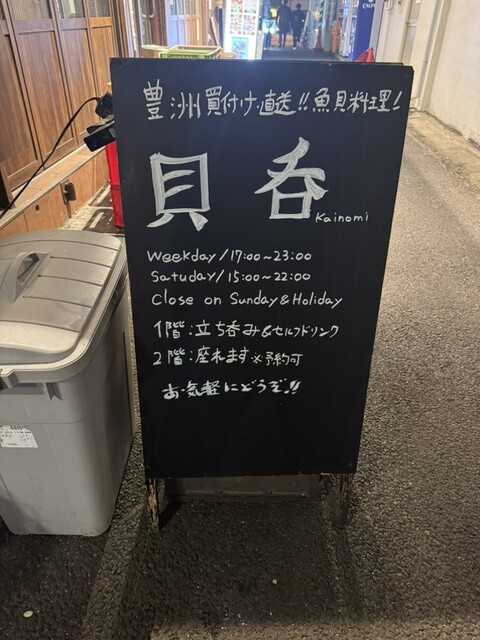 豊洲買付け直送!!魚貝料理!
貝呑
Kainomi
Weekday/17:00~23:00
Satuday/15:00~22:00
Close on Sunday&Holiday
1階:立ち呑み&セルフドリンク
2階:座れます※予約可
お気軽にどうぞ!!